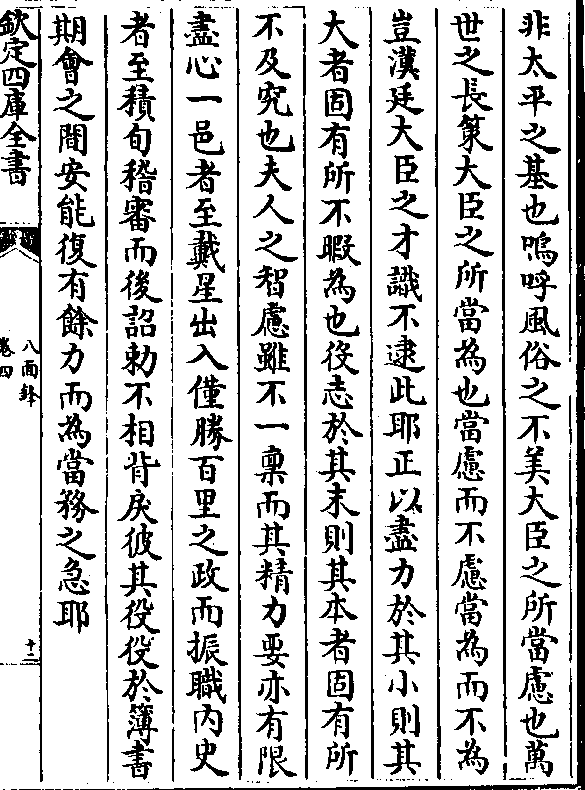 非太平之基也嗚呼風俗之不美大臣之所當慮也萬
世之長策大臣之所當為也當慮而不慮當為而不為
豈漢廷大臣之才識不逮此耶正以盡力於其小則其
大者固有所不暇為也役志於其末則其本者固有所
不及究也夫人之智慮雖不一稟而其精力要亦有限
盡心一邑者至戴星出入僅勝百里之政而振職内史
者至積旬稽審而後詔勅不相背戾彼其役役於簿書
期會之間安能復有餘力而為當務之急耶
欽定四庫全書
八面鋒
卷四
十二